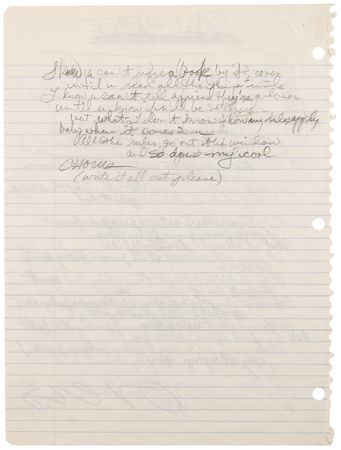 I know u can't judge a book by its cover
until u read all the pages inside
I know u can't tell a friend they're a lover
until u know u'll be satisfied
but what I don't know is how any rules apply
baby when it comes 2 us
all the rules go out the window
and so does my cool
CHORUS
(write it all out please)